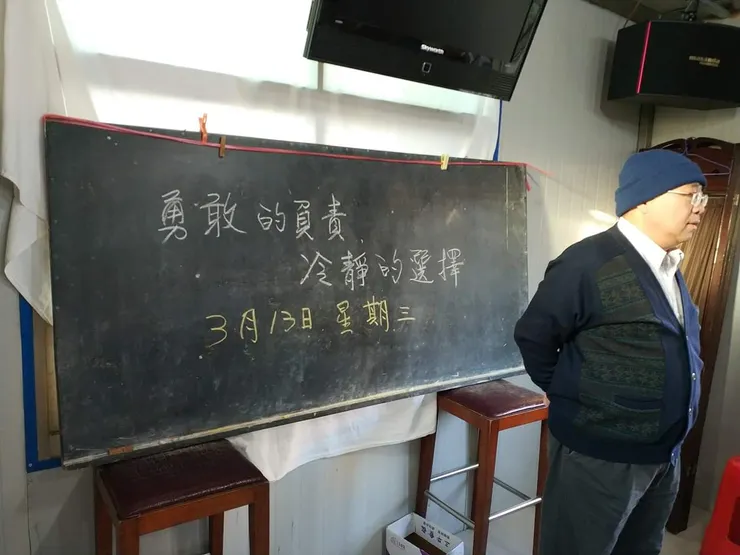 Skyworth
勇敢的負責,
冷靜的選擇
3月13日 星期三